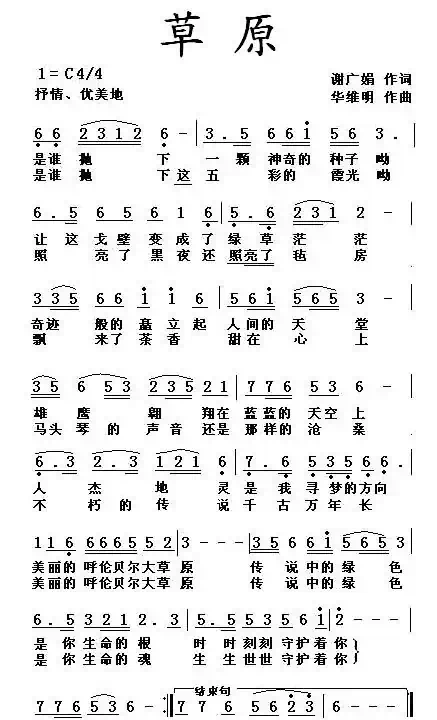 草原
1=C4/4
谢广娟 作词
抒情、优美地
华维明 作曲
6 6 2312 6 - | 3. 5 661 56 3. |
是谁抛 下 一颗 神奇的 种子呦
是谁抛 下这五 彩的 霞光呦
6. 5 6 5 6 1 6 | 5. 6 231 2 - |
让这戈壁变成了绿草茫 茫
照 亮了黑夜还照亮了毡 房
3 35 66 1 1 6 | 561 565 3 - |
奇迹 般的矗立起 人间的天 堂
飘 来了茶香 甜在心 上
35 6 53 235 21 | 776 536 - |
雄 鹰 翱 翔在 蓝蓝的 天空上
马头 琴的 声音 还是 那样的 沧 桑
6. 3 2. 3 121 6 | 7. 6 5356 6. |
人 杰 地 灵是 我 寻梦的方向
不 朽的 传 说千 古万年长
116 6665 52 3 | 3356 661 565 |
美丽的 呼伦贝尔大草 原 传 说中的绿 色
美丽的 呼伦贝尔大草 原 传 说中的绿 色
6. 5 321 2. 3 | 5. 5535 6561 | 2 - - - |
是 你生命的根 时 时刻刻 守护着你
是 你生命的魂 生 生世世 守护着你
结束句
776 5356 6 - :| 7 76 5 6 2 3 | 6 - - - ||